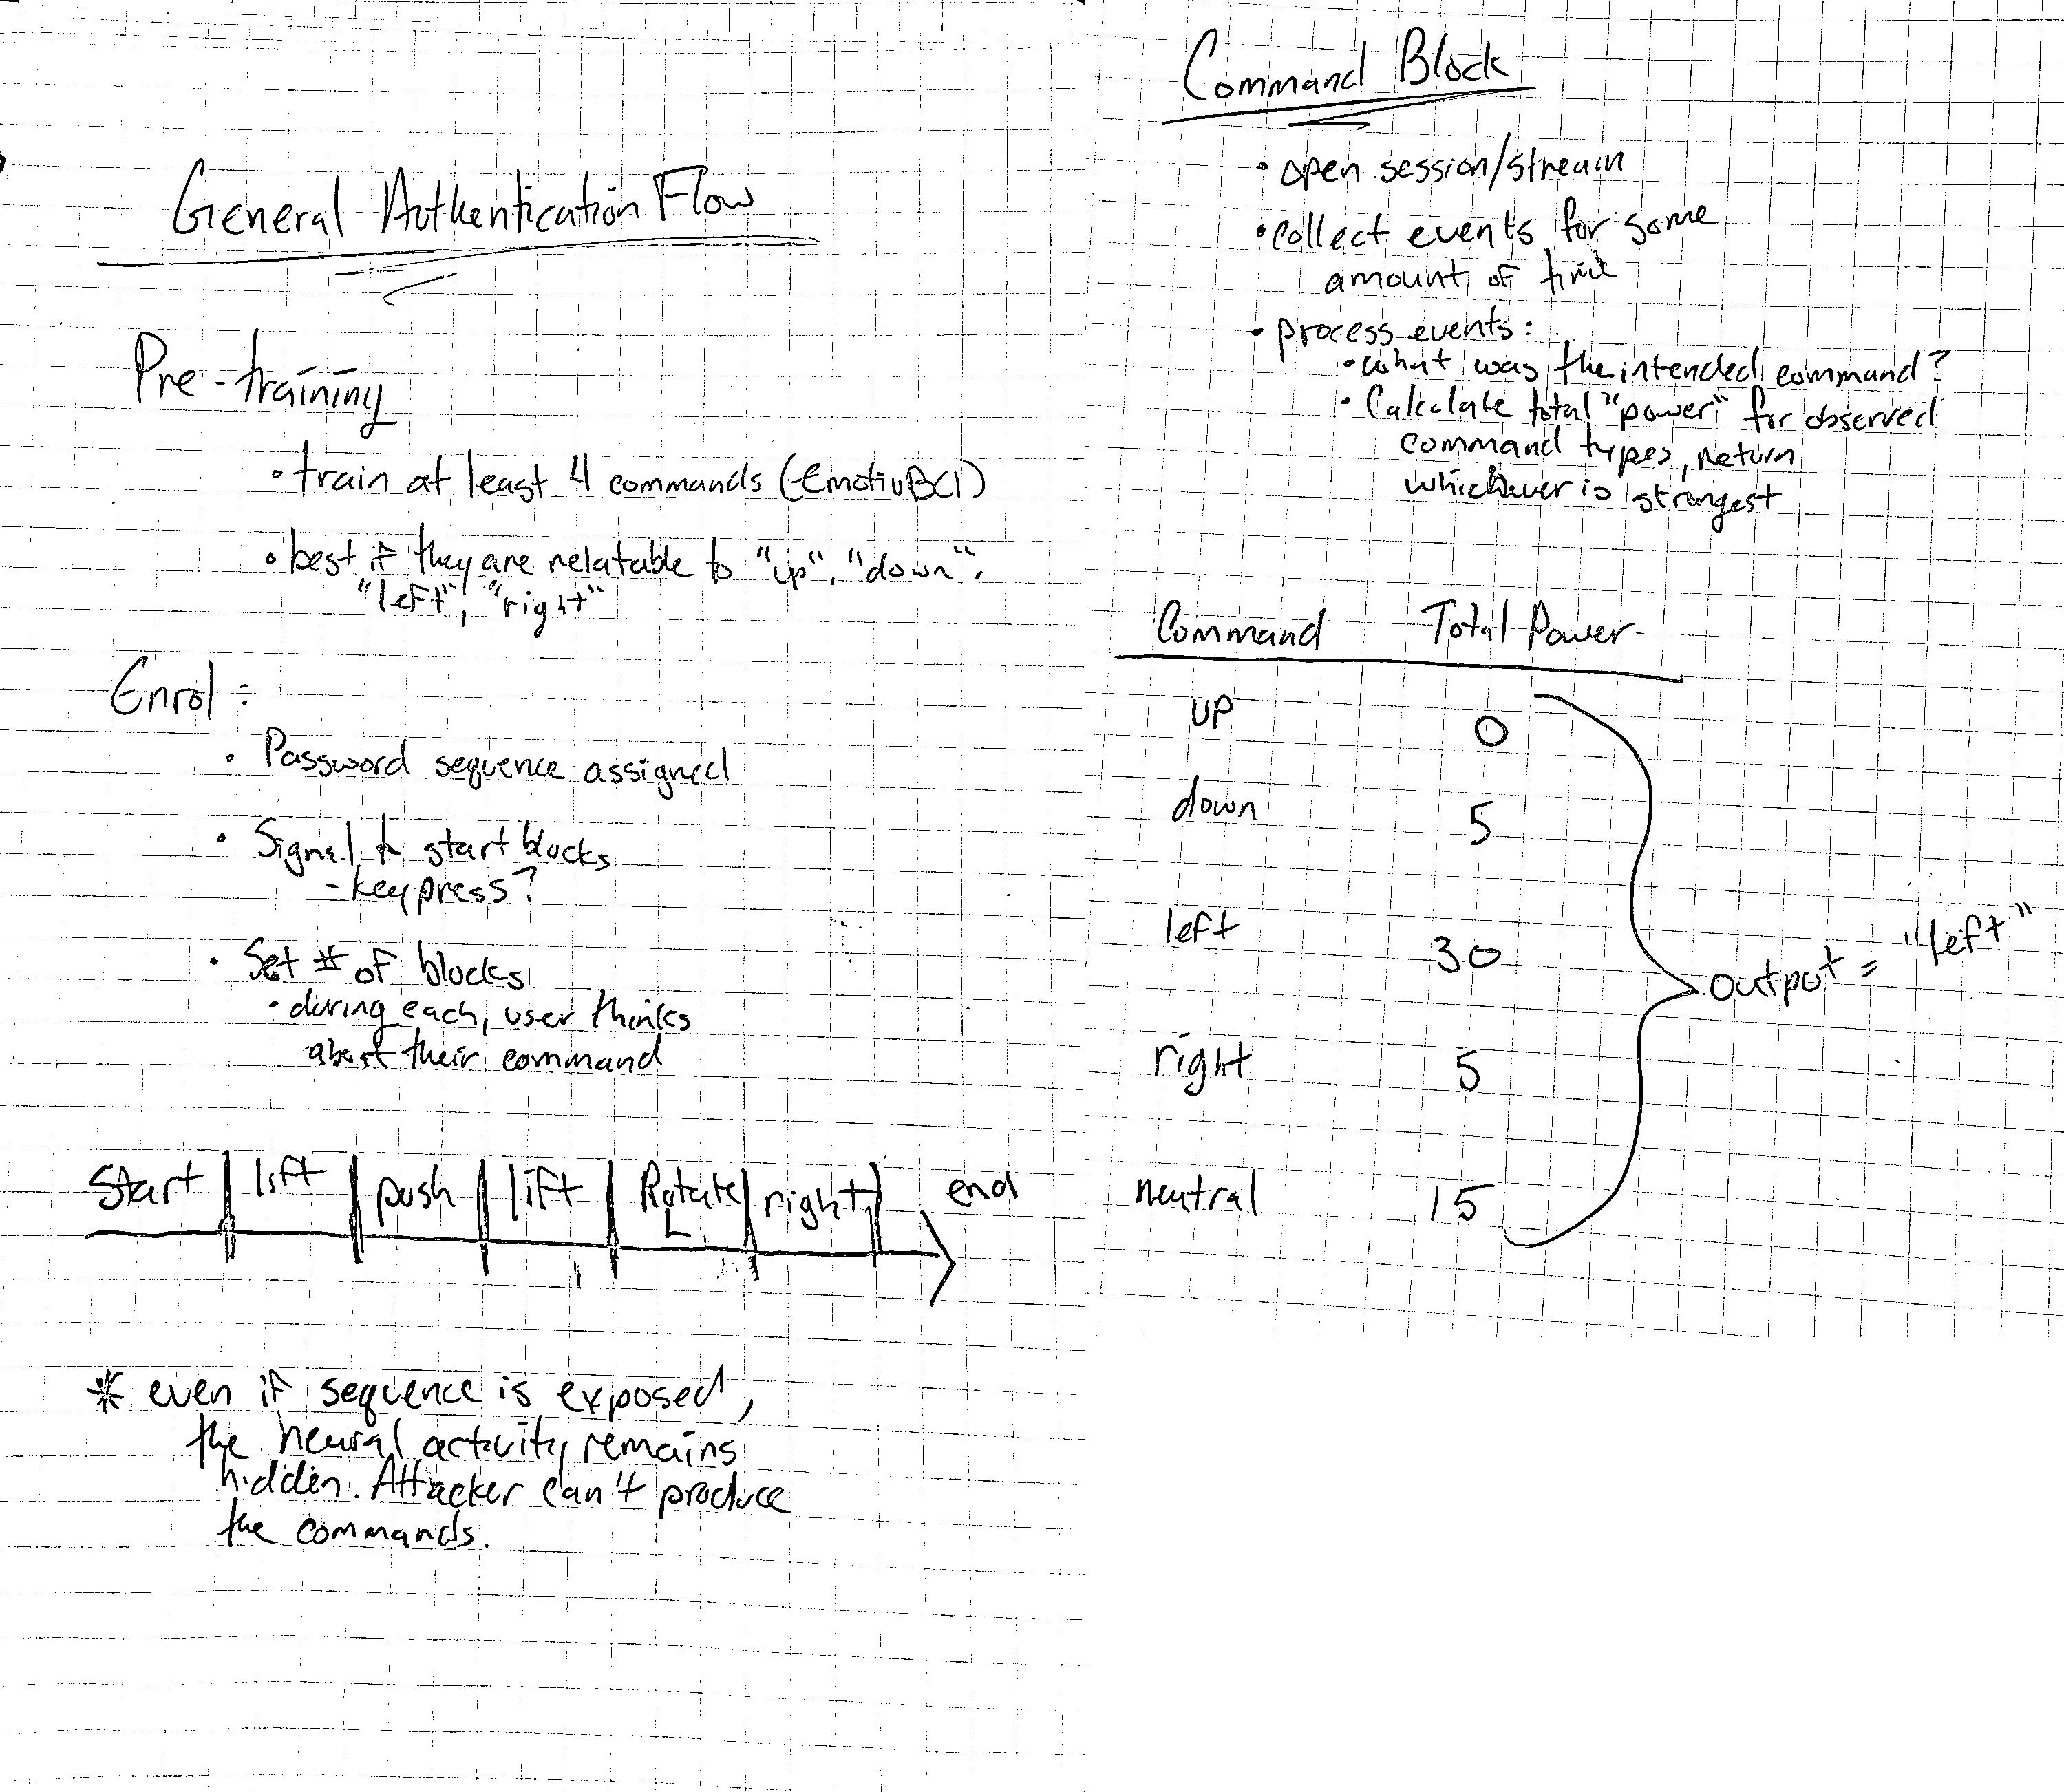 General Authentication Flow
Pre-training
• train at least 4 commands (EmotivBCI)
• best if they are relatable to "up", "down",
"left", "right"
Enrol:
• Password sequence assigned
• Signal to start blocks
- keypress?
• Set # of blocks
• during each, user thinks
about their command
Start | lift | push | lift | Rotate L | right | end
* even if sequence is exposed,
the neural activity remains
hidden. Attacker can't produce
the commands.
Command Block
• open session/stream
• collect events for some
amount of time
• process events:
• what was the intended command?
• Calculate total "power" for observed
command types, return
whichever is strongest
Command Total Power
up 0
down 5
left 30
output = "left"
right 5
neutral 15